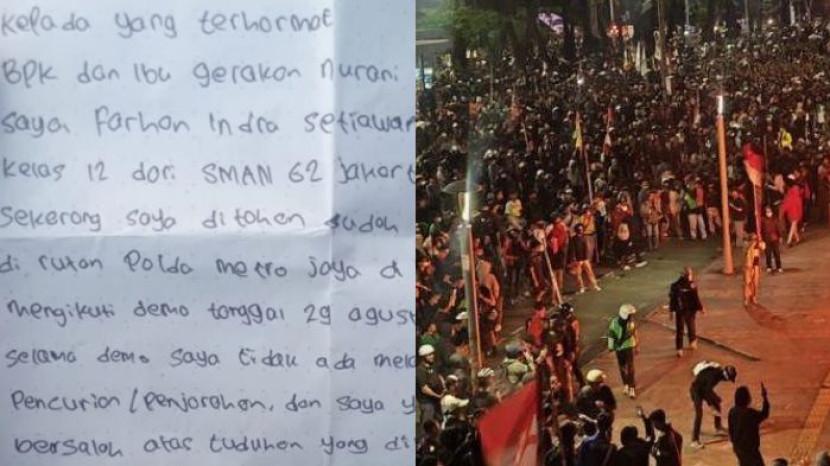 kepada yang terhormat
BPK dan Ibu gerakan nurani
saya Farhan Indra setiawan
kelas 12 dari SMAN 62 jakart
Sekarang saya ditahan sudah
di rutan Polda metro jaya d
mengikuti demo tanggal 29 agust
selama demo saya tidak ada mela
Pencurian/penjarahan, dan saya y
bersalah atas tuduhan yang di